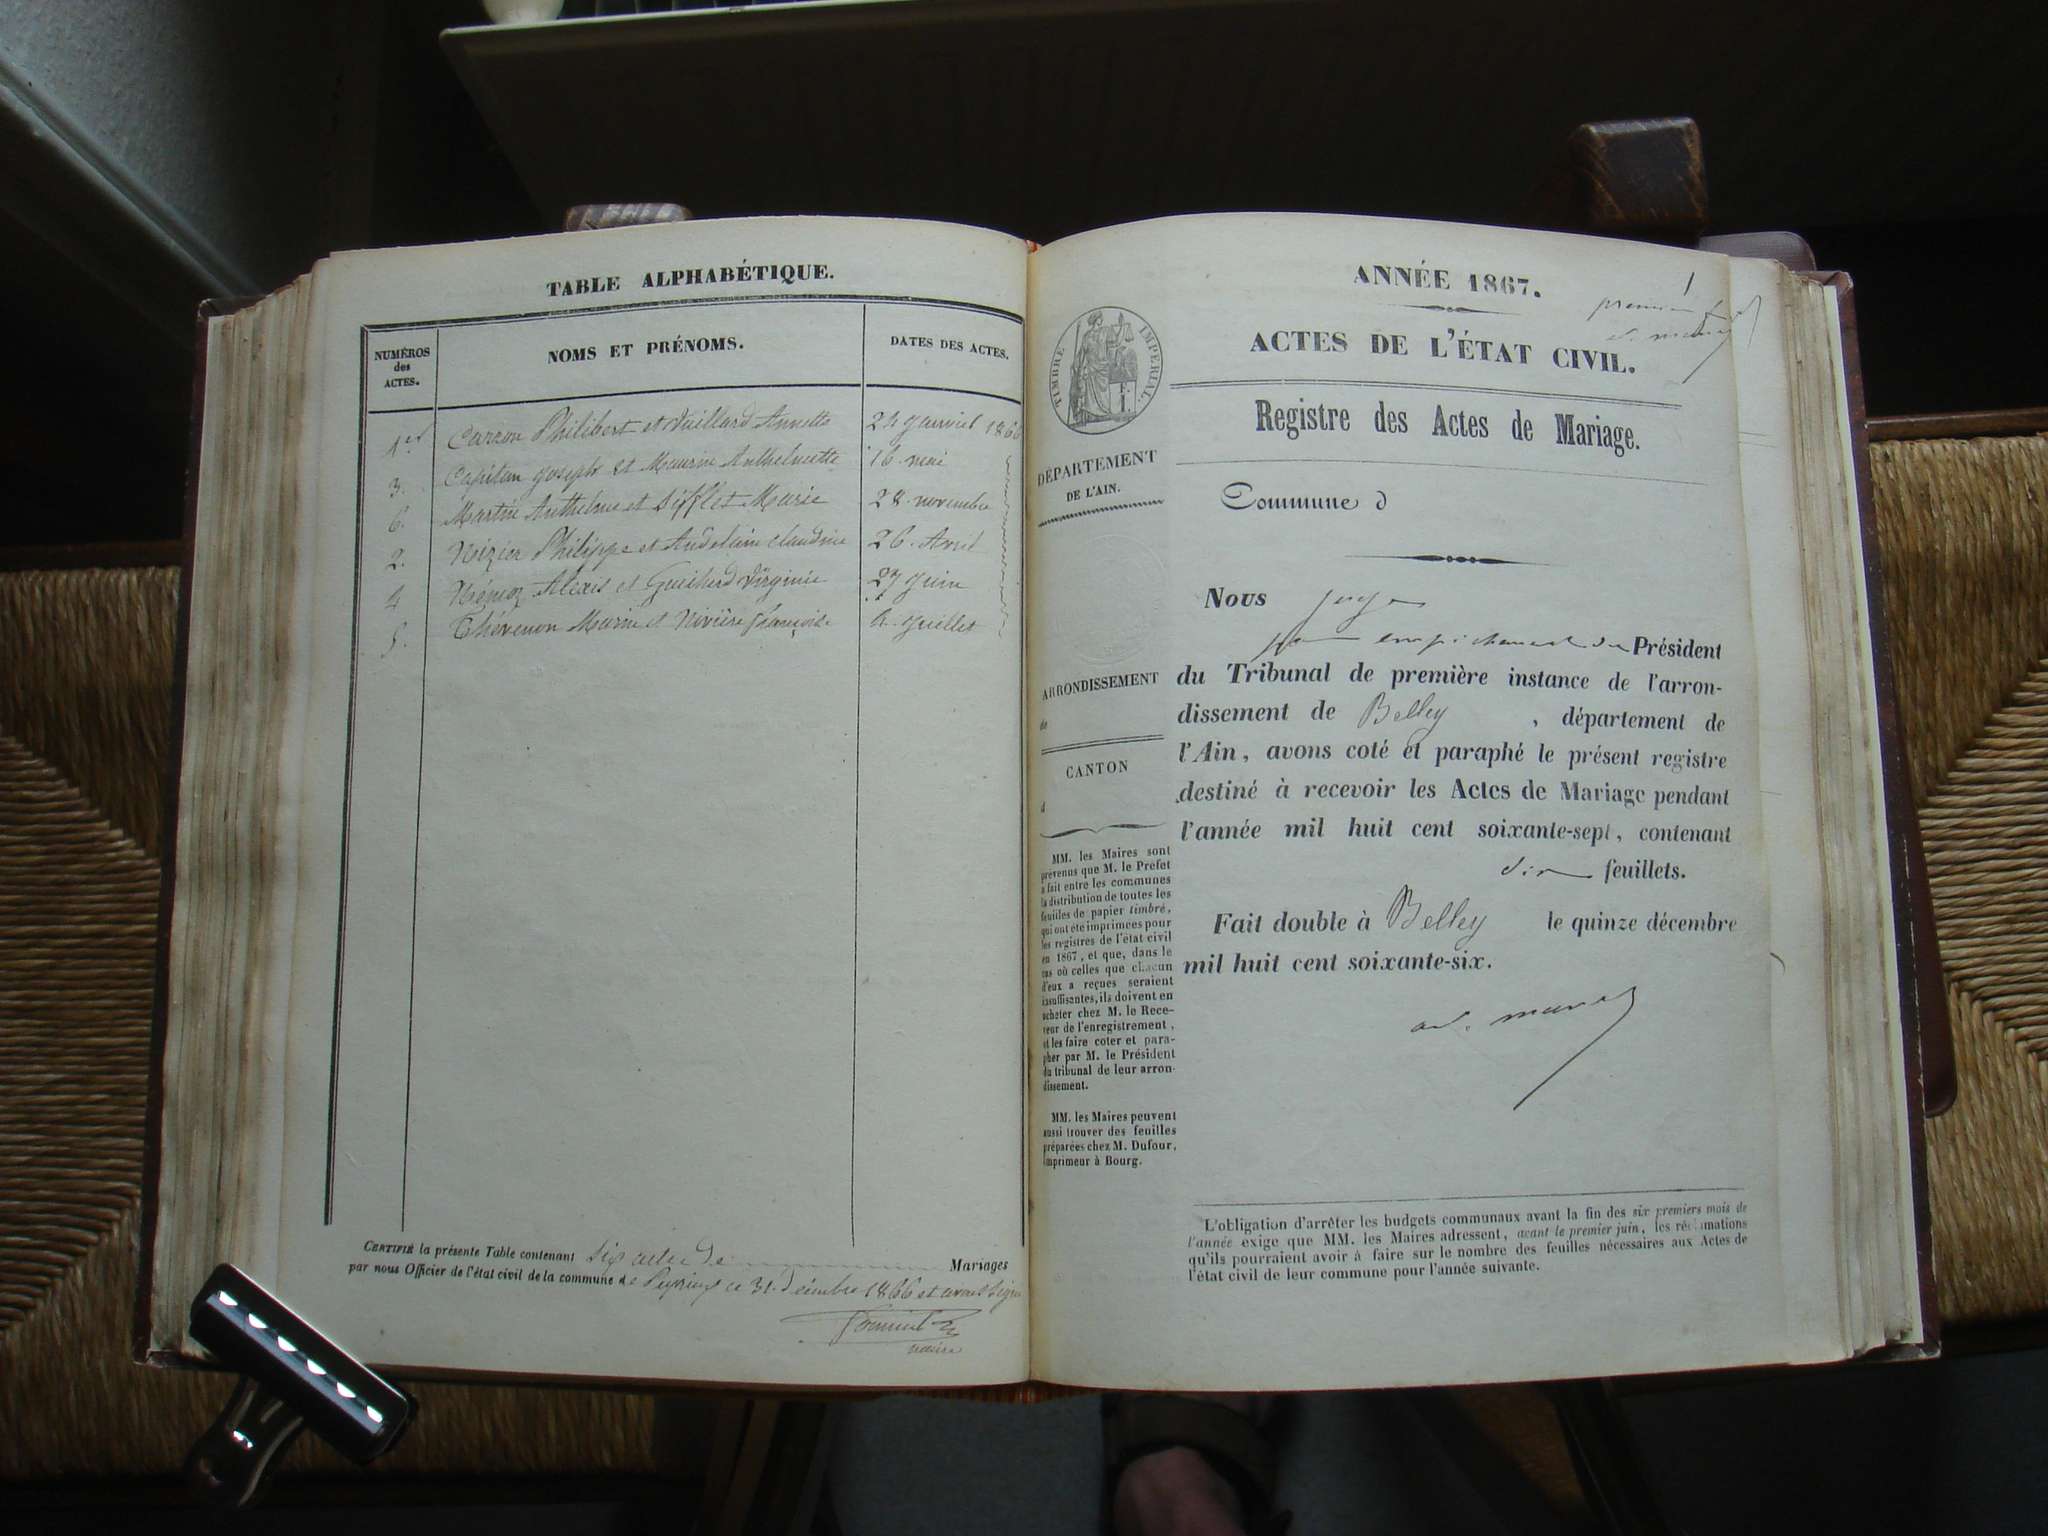 TABLE ALPHABÉTIQUE.
NUMÉROS
des
ACTES.
NOMS ET PRÉNOMS.
DATES DES ACTES.
1er Carron Philibert et Vuillard Annette 24 Janvier 1866
3. Capitan Joseph et Maurin Anthelmette 16. mai
6. Martin Anthelme et Sifflet Marie 28. novembre
2. Philippe et claudine 26. Avril
4 Alexis et Guilland Virginie 27 Juin
5. Thévenon et Rivière françoise 4. Juillet
CERTIFIÉ la présente Table contenant Six actes de Mariages
par nous Officier de l'état civil de la commune de Peyrieux ce 31. décembre 1866 et avons signé
maire
ANNÉE 1867.
1
premier
ACTES DE L'ÉTAT CIVIL.
Registre des Actes de Mariage.
TIMBRE IMPERIAL.
DÉPARTEMENT
DE L'AIN.
Commune d
ARRONDISSEMENT
de
CANTON
d
MM. les Maires sont
prévenus que M. le Préfet
a fait entre les communes
la distribution de toutes les
feuilles de papier timbré,
qui ont été imprimées pour
les registres de l'état civil
en 1867, et que, dans le
cas où celles que chacun
d'eux a reçues seraient
insuffisantes, ils doivent en
acheter chez M. le Rece-
veur de l'enregistrement,
et les faire coter et para-
pher par M. le Président
du tribunal de leur arron-
dissement.
MM. les Maires peuvent
aussi trouver des feuilles
préparées chez M. Dufour,
imprimeur à Bourg.
Nous juge
par empêchement du Président
du Tribunal de première instance de l'arron-
dissement de Belley, département de
l'Ain, avons coté et paraphé le présent registre
destiné à recevoir les Actes de Mariage pendant
l'année mil huit cent soixante-sept, contenant
dix feuillets.
Fait double à Belley le quinze décembre
mil huit cent soixante-six.
L'obligation d'arrêter les budgets communaux avant la fin des six premiers mois de
l'année exige que MM. les Maires adressent, avant le premier juin, les réclamations
qu'ils pourraient avoir à faire sur le nombre des feuilles nécessaires aux Actes de
l'état civil de leur commune pour l'année suivante.